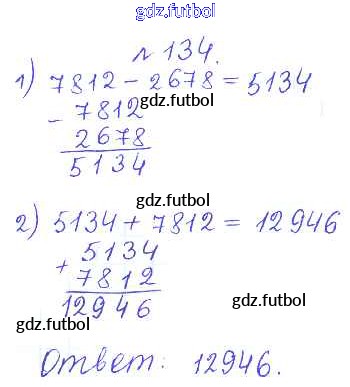 gdz.futbol
№ 134.
1) 7812 - 2678 = 5134
gdz.futbol
- 7812
gdz.futbol
2678
5134
gdz.futbol
2) 5134 + 7812 = 12946
gdz.futbol
+ 5134
7812
gdz.futbol
12946
gdz.futbol
Ответ: 12946.